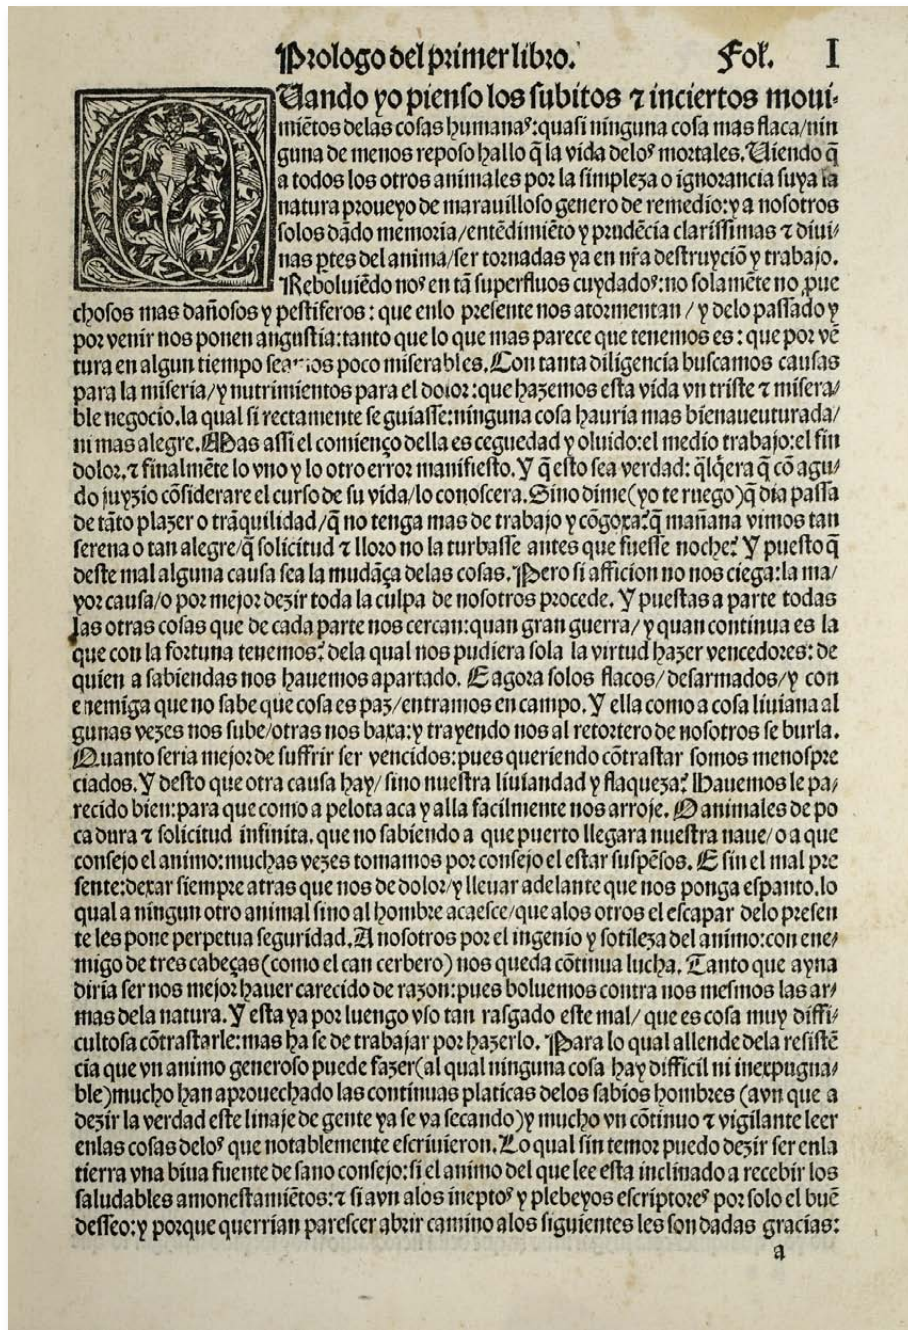 Prologo del primer libro. Fol. I
QUando yo pienso los subitos ⁊ inciertos moui-
miẽtos delas cosas humanaˢ:quasi ninguna cosa mas flaca/nin
guna de menos reposo hallo q̃ la vida deloˢ mortales. Uiendo q̃
a todos los otros animales por la simpleza o ignorancia suya la
natura proueyo de marauilloso genero de remedio:y a nosotros
solos dãdo memoria/entẽdimiẽto y prudẽcia clarissimas ⁊ diui-
nas ꝑtes del anima/ser tornadas ya en nr̃a destruyciõ y trabajo.
Reboluiẽdo noˢ en tã superfluos cuydadoˢ:no solamẽte no ꝓue
chosos mas dañosos y pestiferos: que enlo presente nos atormentan/ y delo passado y
por venir nos ponen angustia:tanto que lo que mas parece que tenemos es: que por vẽ
tura en algun tiempo seamos poco miserables. Con tanta diligencia buscamos causas
para la miseria/y nutrimientos para el dolor:que hazemos esta vida vn triste ⁊ misera/
ble negocio.la qual si rectamente se guiasse:ninguna cosa hauria mas bienaueuturada/
ni mas alegre. Mas assi el comienço della es ceguedad y oluido:el medio trabajo:el fin
dolor.⁊ finalmẽte lo vno y lo otro error manifiesto. Y q̃ esto sea verdad: q̃lq̃era q̃ cõ agu/
do juyzio cõsiderare el curso de su vida/lo conoscera. Sino dime(yo te ruego)q̃ dia passa
de tãto plazer o trãquilidad/q̃ no tenga mas de trabajo y cõgoxa?q̃ mañana vimos tan
serena o tan alegre/q̃ solicitud ⁊ lloro no la turbasse antes que fuesse noche? Y puesto q̃
deste mal alguna causa sea la mudãça delas cosas. Pero si afficion no nos ciega:la ma/
yor causa/o por mejor dezir toda la culpa de nosotros procede. Y puestas a parte todas
las otras cosas que de cada parte nos cercan:quan gran guerra/ y quan continua es la
que con la fortuna tenemos? dela qual nos pudiera sola la virtud hazer vencedores: de
quien a sabiendas nos hauemos apartado. E agora solos flacos/ desarmados/y con
enemiga que no sabe que cosa es paz/entramos en campo. Y ella como a cosa liuiana al
gunas vezes nos sube/otras nos baxa:y trayendo nos al retortero de nosotros se burla.
Quanto seria mejor de suffrir ser vencidos:pues queriendo cõtrastar somos menospre
ciados. Y desto que otra causa hay/ sino nuestra liuiandad y flaqueza? Hauemos le pa/
recido bien:para que como a pelota aca y alla facilmente nos arroje. O animales de po
ca dura ⁊ solicitud infinita. que no sabiendo a que puerto llegara nuestra naue/ o a que
consejo el animo:muchas vezes tomamos por consejo el estar suspẽsos. E sin el mal pre
sente:dexar siempre atras que nos de dolor/y lleuar adelante que nos ponga espanto.lo
qual a ningun otro animal sino al hombre acaesce/que alos otros el escapar delo presen
te les pone perpetua seguridad. A nosotros por el ingenio y sotileza del animo:con ene/
migo de tres cabeças(como el can cerbero) nos queda cõtinua lucha. Tanto que ayna
diria ser nos mejor hauer carecido de razon:pues boluemos contra nos mesmos las ar/
mas dela natura. Y esta ya por luengo vso tan rasgado este mal/ que es cosa muy diffi/
cultosa cõtrastarle:mas ha se de trabajar por hazerlo. Para lo qual allende dela resistẽ
cia que vn animo generoso puede fazer(al qual ninguna cosa hay difficil ni inexpugna/
ble)mucho han aprouechado las continuas platicas delos sabios hombres (avn que a
dezir la verdad este linaje de gente ya se va secando)y mucho vn cõtinuo ⁊ vigilante leer
enlas cosas deloˢ que notablemente escriuieron. Lo qual sin temor puedo dezir ser enla
tierra vna biua fuente de sano consejo:si el animo del que lee esta inclinado a recebir los
saludables amonestamiẽtos:⁊ si avn alos ineptoˢ y plebeyos escriptoreˢ por solo el buẽ
desseo:y porque querrian parescer abrir camino alos siguientes les son dadas gracias:
a